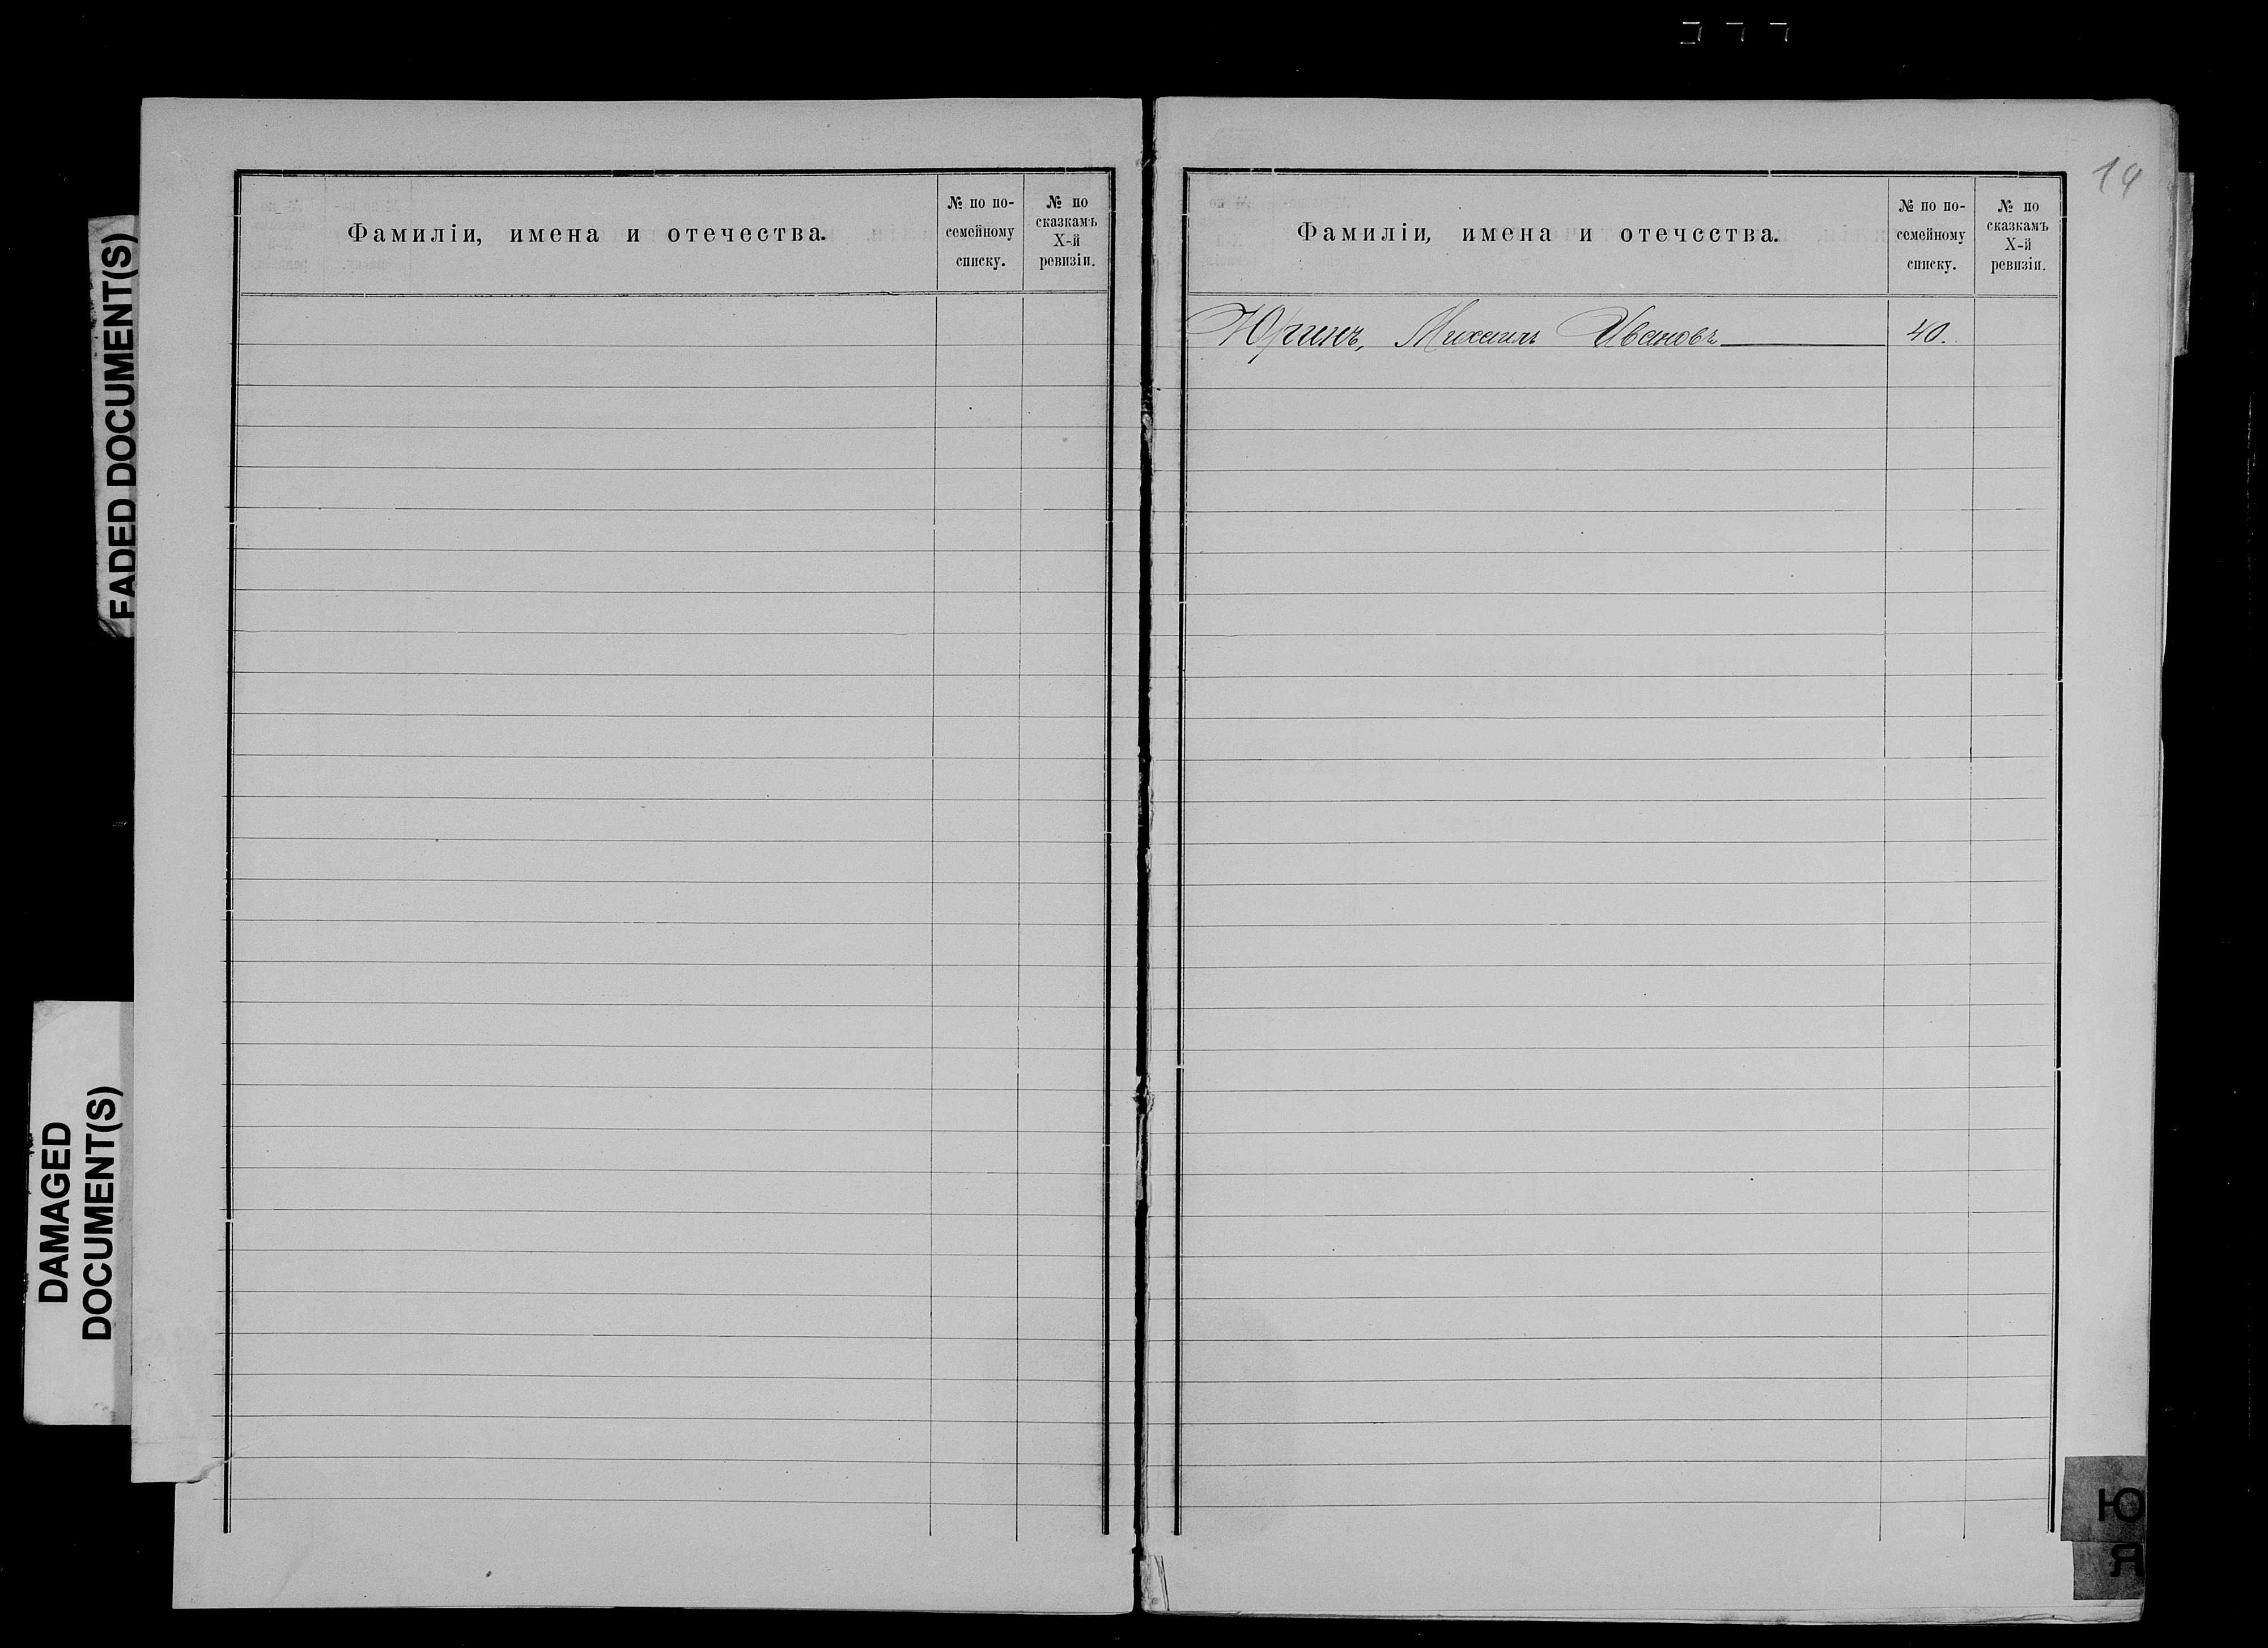 14
FADED DOCUMENT(S)
DAMAGED
DOCUMENT(S)
Фамиліи, имена и отечества.
№ по по-
семейному
списку.
№ по
сказкамъ
X-й
ревизіи.
Фамиліи, имена и отечества.
№ по по-
семейному
списку.
№ по
сказкамъ
X-й
ревизіи.
Юринъ, Михаилъ Ивановъ 40.
Ю
Я